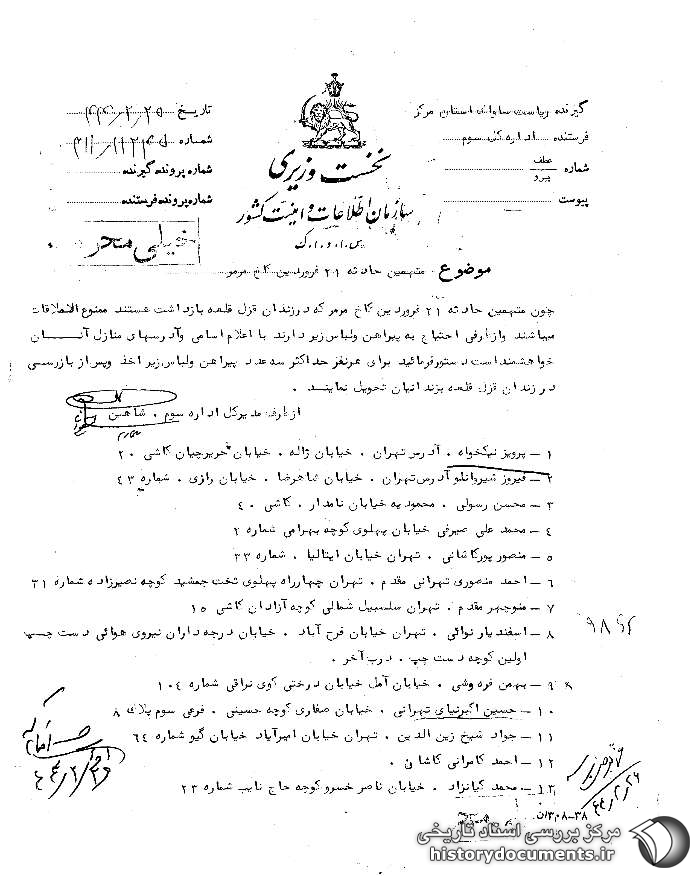 گیرنده ریاست ساواک استان مرکز
فرستنده اداره کل سوم
شماره عطف
پیرو
پیوست
نخست وزیری
سازمان اطلاعات و امنیت کشور
س.ا.و.ا.ک
تاریخ ۴۴/۲/۲۵
شماره
شماره پرونده گیرنده
شماره پرونده فرستنده
خیلی محر
موضوع . متهمین حادثه ۲۱ فروردین کاخ مرمر
چون متهمین حادثه ۲۱ فروردین کاخ مرمر که در زندان قزل قلعه بازداشت هستند ممنوع الملاقات
میباشند و از طرفی احتیاج به پیراهن ولباس زیر دارند با اعلام اسامی وآدرسهای منازل آنان
خواهشمند است دستور فرمائید برای هر نفر حداکثر سه عدد پیراهن ولباس زیر اخذ وپس از بازرسی
در زندان قزل قلعه بزندانیان تحویل نمایند .
از طرف مدیر کل اداره سوم . شاهین
۱ – پرویز نیکخواه . آدرس تهران . خیابان ژاله . خیابان حریرچیان کاشی ۲۰
۲ – فیروز شیروانلو آدرس تهران . خیابان شاهرضا . خیابان رازی . شماره ۴۳
۳ – محسن رسولی . محمودیه خیابان نامدار . کاشی ۴۰
۴ – محمد علی صیرفی خیابان پهلوی کوچه بهرامی شماره ۲
۵ – منصور پورکاشانی . تهران خیابان ایتالیا . شماره ۳۳
۶ – احمد منصوری تهرانی مقدم . تهران چهارراه پهلوی تخت جمشید کوچه نصیرزاده شماره ۳۱
۷ – منوچهر مقدم . تهران سلسبیل شمالی کوچه آزادان کاشی ۱۵
۸ – اسفندیار نوائی . تهران خیابان فرح آباد . خیابان درجه داران نیروی هوائی دست چپ
اولین کوچه دست چپ . درب آخر .
۹ – بهمن فره وشی . خیابان آمل خیابان درختی کوی نراقی شماره ۱۰۴
۱۰ – حسین اکبرنیای تهرانی . خیابان صفاری کوچه حسینی . فرعی سوم پلاک ۸
۱۱ – جواد شیخ زین الدین . تهران خیابان امیرآباد خیابان گیو شماره ۶۴
۱۲ – احمد کامرانی کاشان .
۱۳ – محمد کیانزاد . خیابان ناصر خسرو کوچه حاج نایب شماره ۲۳
۴۴/۲/۲۶
مرکز بررسی اسناد تاریخی
historydocuments.ir